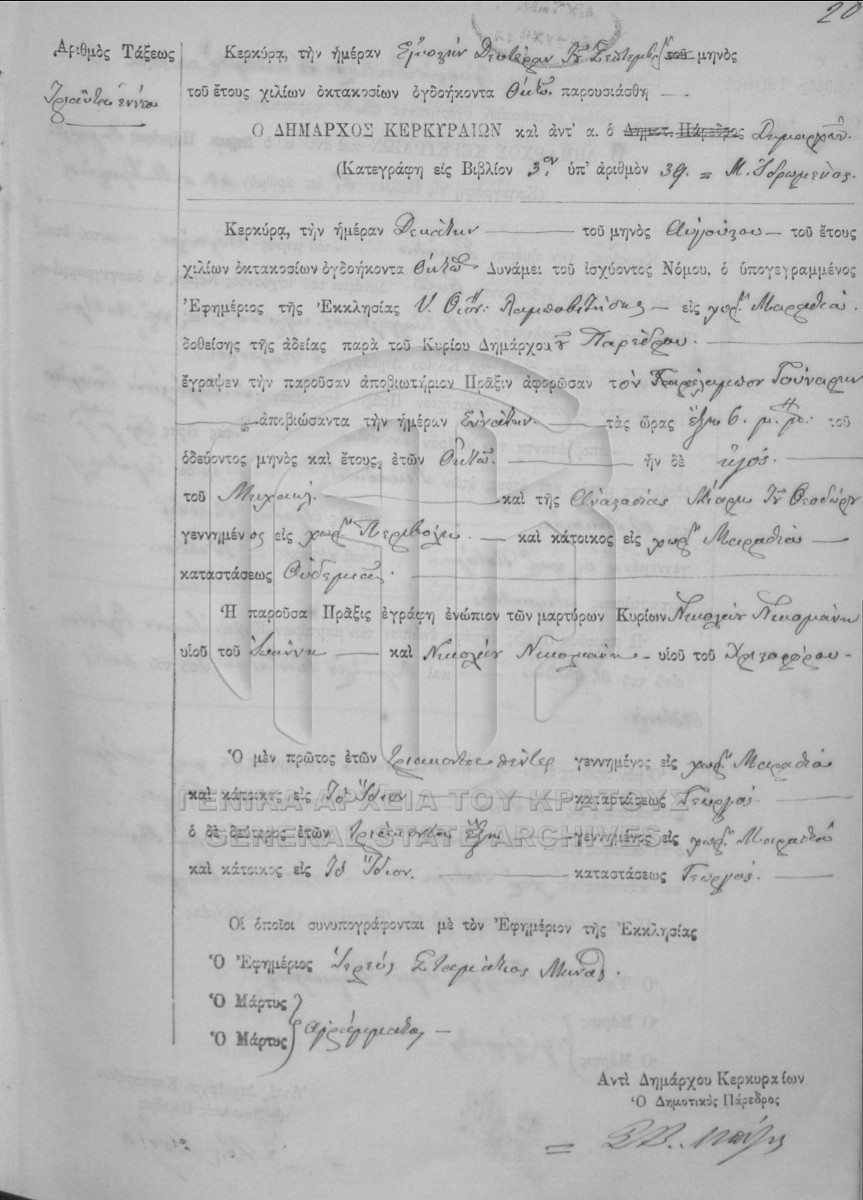 20
Ἀριθμὸς Τάξεως
Τριάντα ἐννέα
Κερκύρᾳ, τὴν ἡμέραν Εἰκοστὴν Δευτέραν τοῦ Σεπτεμβρ τοῦ μηνὸς
τοῦ ἔτους χιλίων ὀκτακοσίων ὀγδοήκοντα Ὀκτώ παρουσιάσθη
Ο ΔΗΜΑΡΧΟΣ ΚΕΡΚΥΡΑΙΩΝ καὶ ἀντ' α. ὁ Δημοτ. Πάρεδρος
(Κατεγράφη εἰς Βιβλίον 3ον ὑπ' ἀριθμὸν 39. =
Κερκύρᾳ, τὴν ἡμέραν Δεκάτην τοῦ μηνὸς Αὐγούστου τοῦ ἔτους
χιλίων ὀκτακοσίων ὀγδοήκοντα Ὀκτώ Δυνάμει τοῦ ἰσχύοντος Νόμου, ὁ ὑπογεγραμμένος
Ἐφημέριος τῆς Ἐκκλησίας Υ. Θκου Λαμποβιτήσης εἰς χωρ. Μαραθιά.
δοθείσης τῆς ἀδείας παρὰ τοῦ Κυρίου Δημάρχου Παρέδρου.
ἔγραψεν τὴν παροῦσαν ἀποβιωτήριον Πρᾶξιν ἀφορῶσαν τὸν Χαράλαμπον Γούναρην
ἀποβιώσαντα τὴν ἡμέραν Ἐννάτην τὰς ὥρας ἕξη 6. μ. μ. τοῦ
ὁδεύοντος μηνὸς καὶ ἔτους, ἐτῶν Ὀκτώ. ἦν δὲ υἱός.
τοῦ Μιχαήλ καὶ τῆς Ἀναστασίας Θεοδώρου
γεννημένος εἰς χωρ. Περιβόλι καὶ κάτοικος εἰς χωρ. Μαραθιά
καταστάσεως Οὐδεμιᾶς.
Ἡ παροῦσα Πρᾶξις ἐγράφη ἐνώπιον τῶν μαρτύρων Κυρίων Νικολάου
υἱοῦ τοῦ Ἰωάννη καὶ Νικολάου υἱοῦ τοῦ Χριστοφόρου
Ὁ μὲν πρῶτος ἐτῶν τριακονταπέντε γεννημένος εἰς χωρ. Μαραθιά
καὶ κάτοικος εἰς Τὸ Ἴδιον καταστάσεως Γεωργός.
ὁ δὲ δεύτερος ἐτῶν Τριάκοντα ἕξη γεννημένος εἰς χωρ. Μαραθιά
καὶ κάτοικος εἰς Τὸ Ἴδιον. καταστάσεως Γεωργός.
ΓΕΝΙΚΑ ΑΡΧΕΙΑ ΤΟΥ ΚΡΑΤΟΥΣ
GENERAL STATE ARCHIVES
Οἱ ὁποῖοι συνυπογράφονται μὲ τὸν Ἐφημέριον τῆς Ἐκκλησίας
Ὁ Ἐφημέριος Ἱερεὺς Σταμάτιος
Ὁ Μάρτυς
Ὁ Μάρτυς Ἀγράμματοι
Ἀντὶ Δημάρχου Κερκυραίων
Ὁ Δημοτικὸς Πάρεδρος